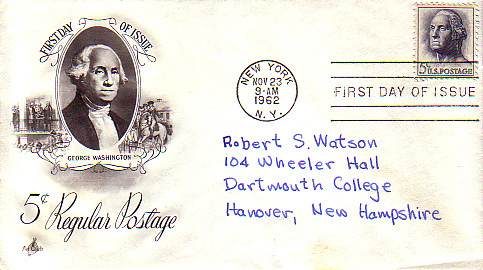 FIRST DAY OF ISSUE
GEORGE WASHINGTON
5¢ Regular Postage
ArtCraft
NEW YORK
NOV 23
9-AM
1962
N. Y.
5¢
U.S. POSTAGE
FIRST DAY OF ISSUE
Robert S. Watson
104 Wheeler Hall
Dartmouth College
Hanover, New Hampshire